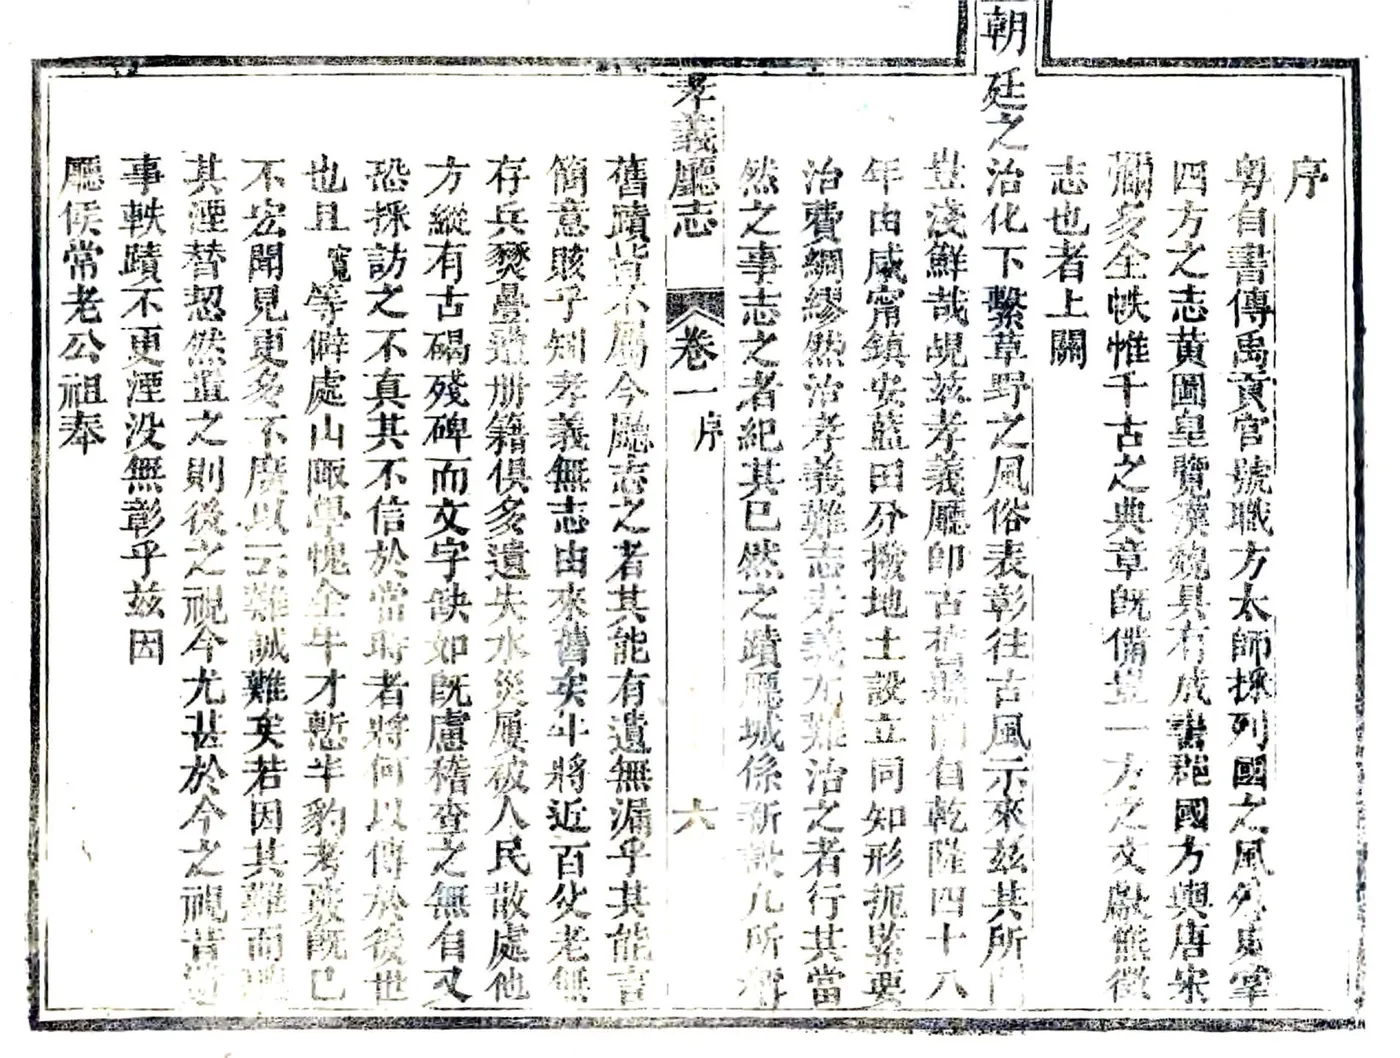 序
粵自書傳禹貢官號職方太師採列國之風外史掌
四方之志黃圖皇覽漢魏具有成書郡國方輿唐宋
彌多全帙惟千古之典章既備豈一方之文獻無徵
志也者上關
朝廷之治化下繫草野之風俗表彰往古風示來茲其所
豈淺鮮哉況茲孝義廳卽古舊縣關自乾隆四十八
年由咸甯鎮安藍田分撥地土設立同知形扼緊要
治費綢繆然治孝義難志孝義尤難治之者行其當
然之事志之者紀其已然之蹟廳城係新設凡所
孝義廳志 卷一 序 六
舊蹟皆不屬今廳志之者其能有遺無漏乎其能言
簡意賅乎知孝義無志由來舊矣年將近百父老無
存兵燹疊遭册籍俱多遺失水災屢破人民散處他
方縱有古碣殘碑而文字缺如既慮稽查之無自又
恐採訪之不真其不信於當時者將何以傳於後世
也且寬等僻處山陬學愧全牛才慙半豹考覈既已
不宏聞見更多不廣以云難誠難矣若因其難而
其湮替恝然置之則後之視今尤甚於今之視昔
事軼蹟不更湮没無彰乎茲因
廳侯常老公祖奉